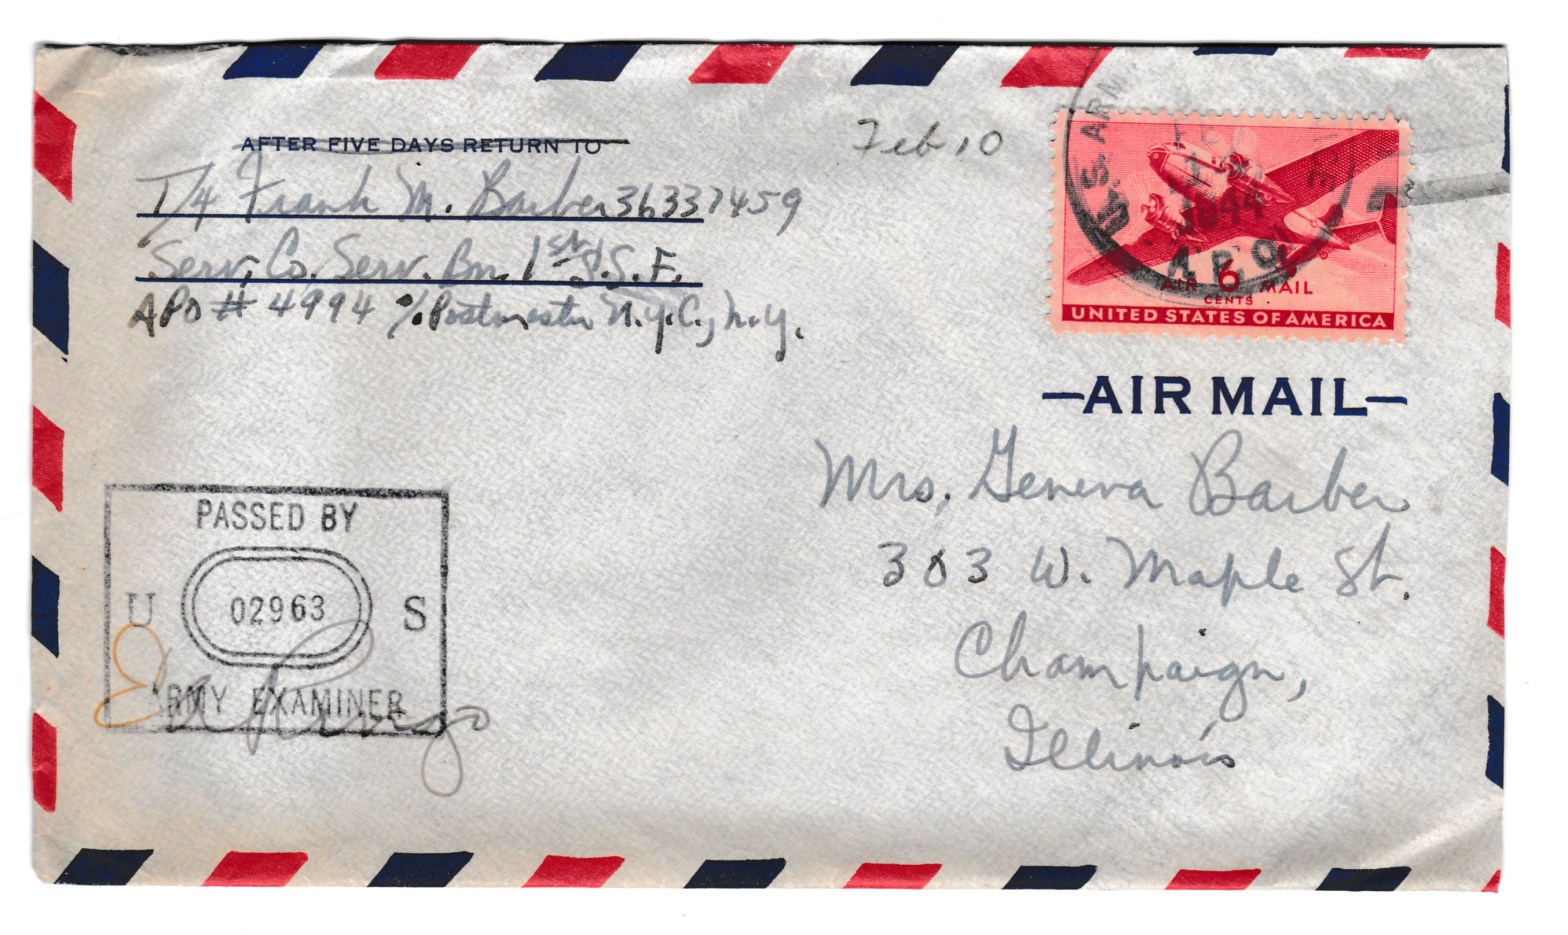 AFTER FIVE DAYS RETURN TO
T/4 Frank M. Barber 36337459
Serv. Co. Serv. Bn. 1st S.S.F.
APO # 4994 % Postmaster N.Y.C., N.Y.
Feb 10
U.S. ARMY
1944
A.P.O.
AIR 6 MAIL
CENTS
UNITED STATES OF AMERICA
—AIR MAIL—
Mrs. Geneva Barber
303 W. Maple St.
Champaign,
Illinois
PASSED BY
U 02963 S
ARMY EXAMINER